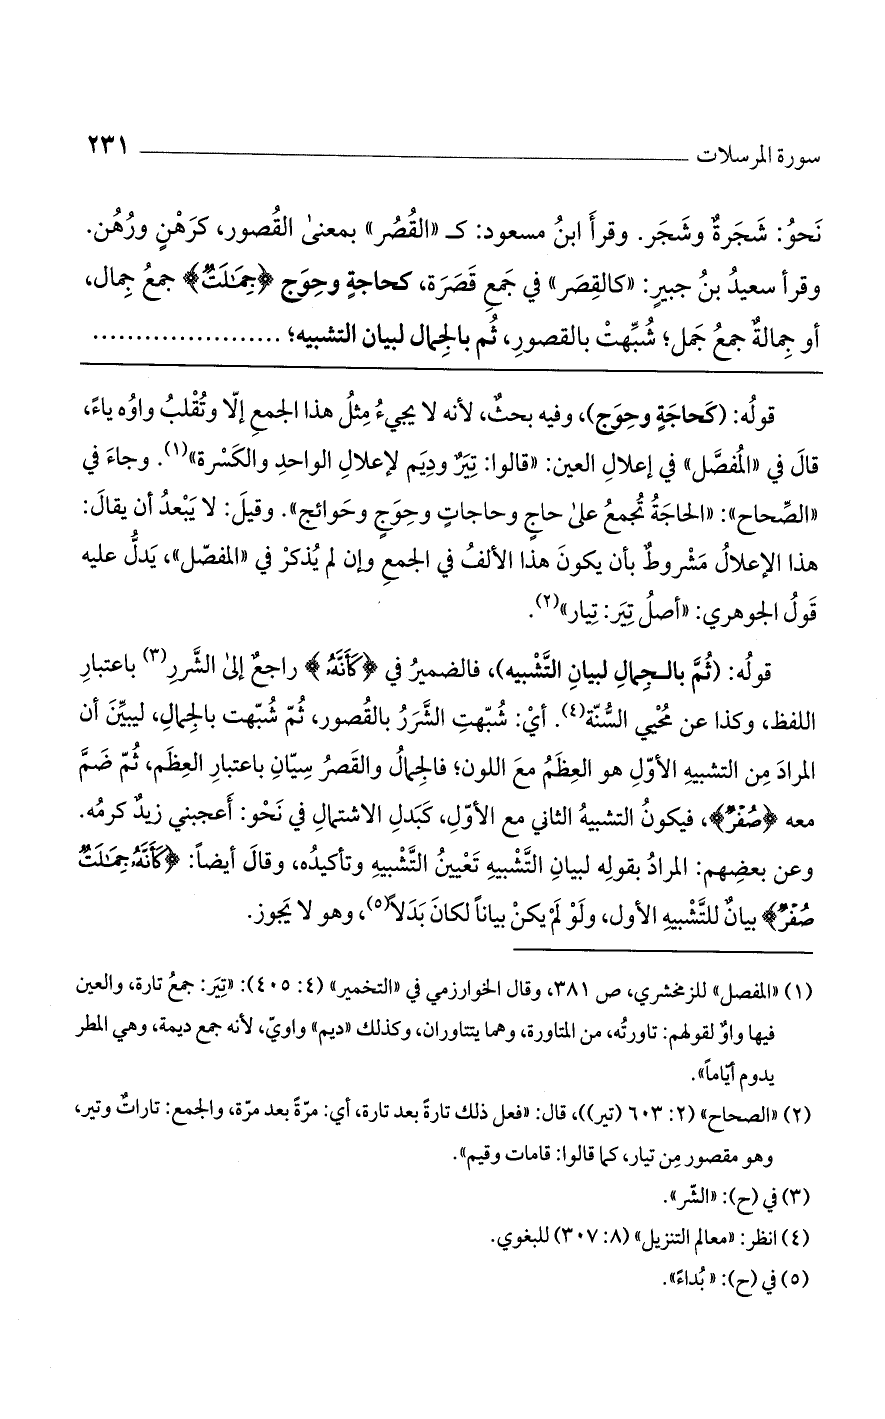 سورة المرسلات ــــــــــــــــــــــــــــــــ ٢٣١
نَحوُ: شَجَرةٌ وشَجَر. وقرأَ ابنُ مسعود: كـ «القُصُر» بمعنىٰ القُصور، كرَهْنٍ ورُهُن.
وقرأ سعيدُ بنُ جبيرٍ: «كالقِصَر» في جَمعِ قَصَرَة، كحاجةٍ وحِوَج ﴿جِمَٰلَتٌ﴾ جمعُ جِمال،
أو جِمالةٌ جمعُ جَمل؛ شُبِّهتْ بالقصورِ، ثُم بالجِمال لبيان التشبيه؛ ......................
قولُه: (كَحاجَةٍ وحِوَج)، وفيه بحثٌ، لأنه لا يجيءُ مِثلُ هذا الجمعِ إلّا وتُقْلبُ واوُه ياءً،
قالَ في «المُفصَّل» في إعلالِ العين: «قالوا: تِيَرٌ ودِيَم لإعلالِ الواحدِ والكَسْرة»(١). وجاءَ في
«الصِّحاح»: «الحاجَةُ تُجمعُ علىٰ حاجٍ وحاجاتٍ وحِوَجٍ وحَوائج». وقيلَ: لا يَبْعدُ أن يقالَ:
هذا الإعلالُ مَشْروطٌ بأن يكونَ هذا الألفُ في الجمعِ وإن لم يُذكرْ في «المفصّل»، يَدلُّ عليه
قَولُ الجوهري: «أصلُ تِيَر: تِيار»(٢).
قولُه: (ثُمَّ بالـجِمالِ لبيانِ التَّشْبيه)، فالضميرُ في ﴿كَأَنَّهُۥ﴾ راجعٌ إلىٰ الشَّررِ(٣) باعتبارِ
اللفظ، وكذا عن مُحْيي السُّنّة(٤). أيْ: شُبّهتِ الشَّرَرُ بالقُصور، ثُمّ شُبّهت بالجِمالِ، ليبيِّنَ أن
المرادَ مِن التشبيهِ الأوّلِ هو العِظَمُ معَ اللون؛ فالجِمالُ والقَصرُ سِيّان باعتبارِ العِظَم، ثُمّ ضَمَّ
معه ﴿صُفْرٌ﴾، فيكونُ التشبيهُ الثاني مع الأوّلِ، كَبَدلِ الاشتمالِ في نَحْو: أَعجبني زيدٌ كرمُه.
وعن بعضِهم: المرادُ بقولِه لبيانِ التَّشْبيهِ تَعْيينُ التَّشْبيهِ وتأكيدُه، وقالَ أيضاً: ﴿كَأَنَّهُۥ جِمَٰلَتٌ
صُفْرٌ﴾ بيانٌ للتَّشْبيهِ الأول، ولَوْ لَمْ يكنْ بياناً لكانَ بَدَلاً(٥)، وهو لا يَجوز.
(١) «المفصل» للزمخشري، ص ٣٨١، وقال الخوارزمي في «التخمير» (٤: ٤٠٥): «تِيَر: جمعُ تارة، والعين
فيها واوٌ لقولهم: تاورتُه، من المتاورة، وهما يتتاوران، وكذلك «ديم» واويّ، لأنه جمع ديمة، وهي المطر
يدوم أيّاماً».
(٢) «الصحاح» (٢: ٦٠٣ (تير))، قال: «فعل ذلك تارةً بعد تارة، أي: مرّةً بعد مرّة، والجمع: تاراتٌ وتير،
وهو مقصور مِن تيار، كما قالوا: قامات وقيم».
(٣) في (ح): «الشّر».
(٤) انظر: «معالم التنزيل» (٨: ٣٠٧) للبغوي.
(٥) في (ح): «بُداءً».